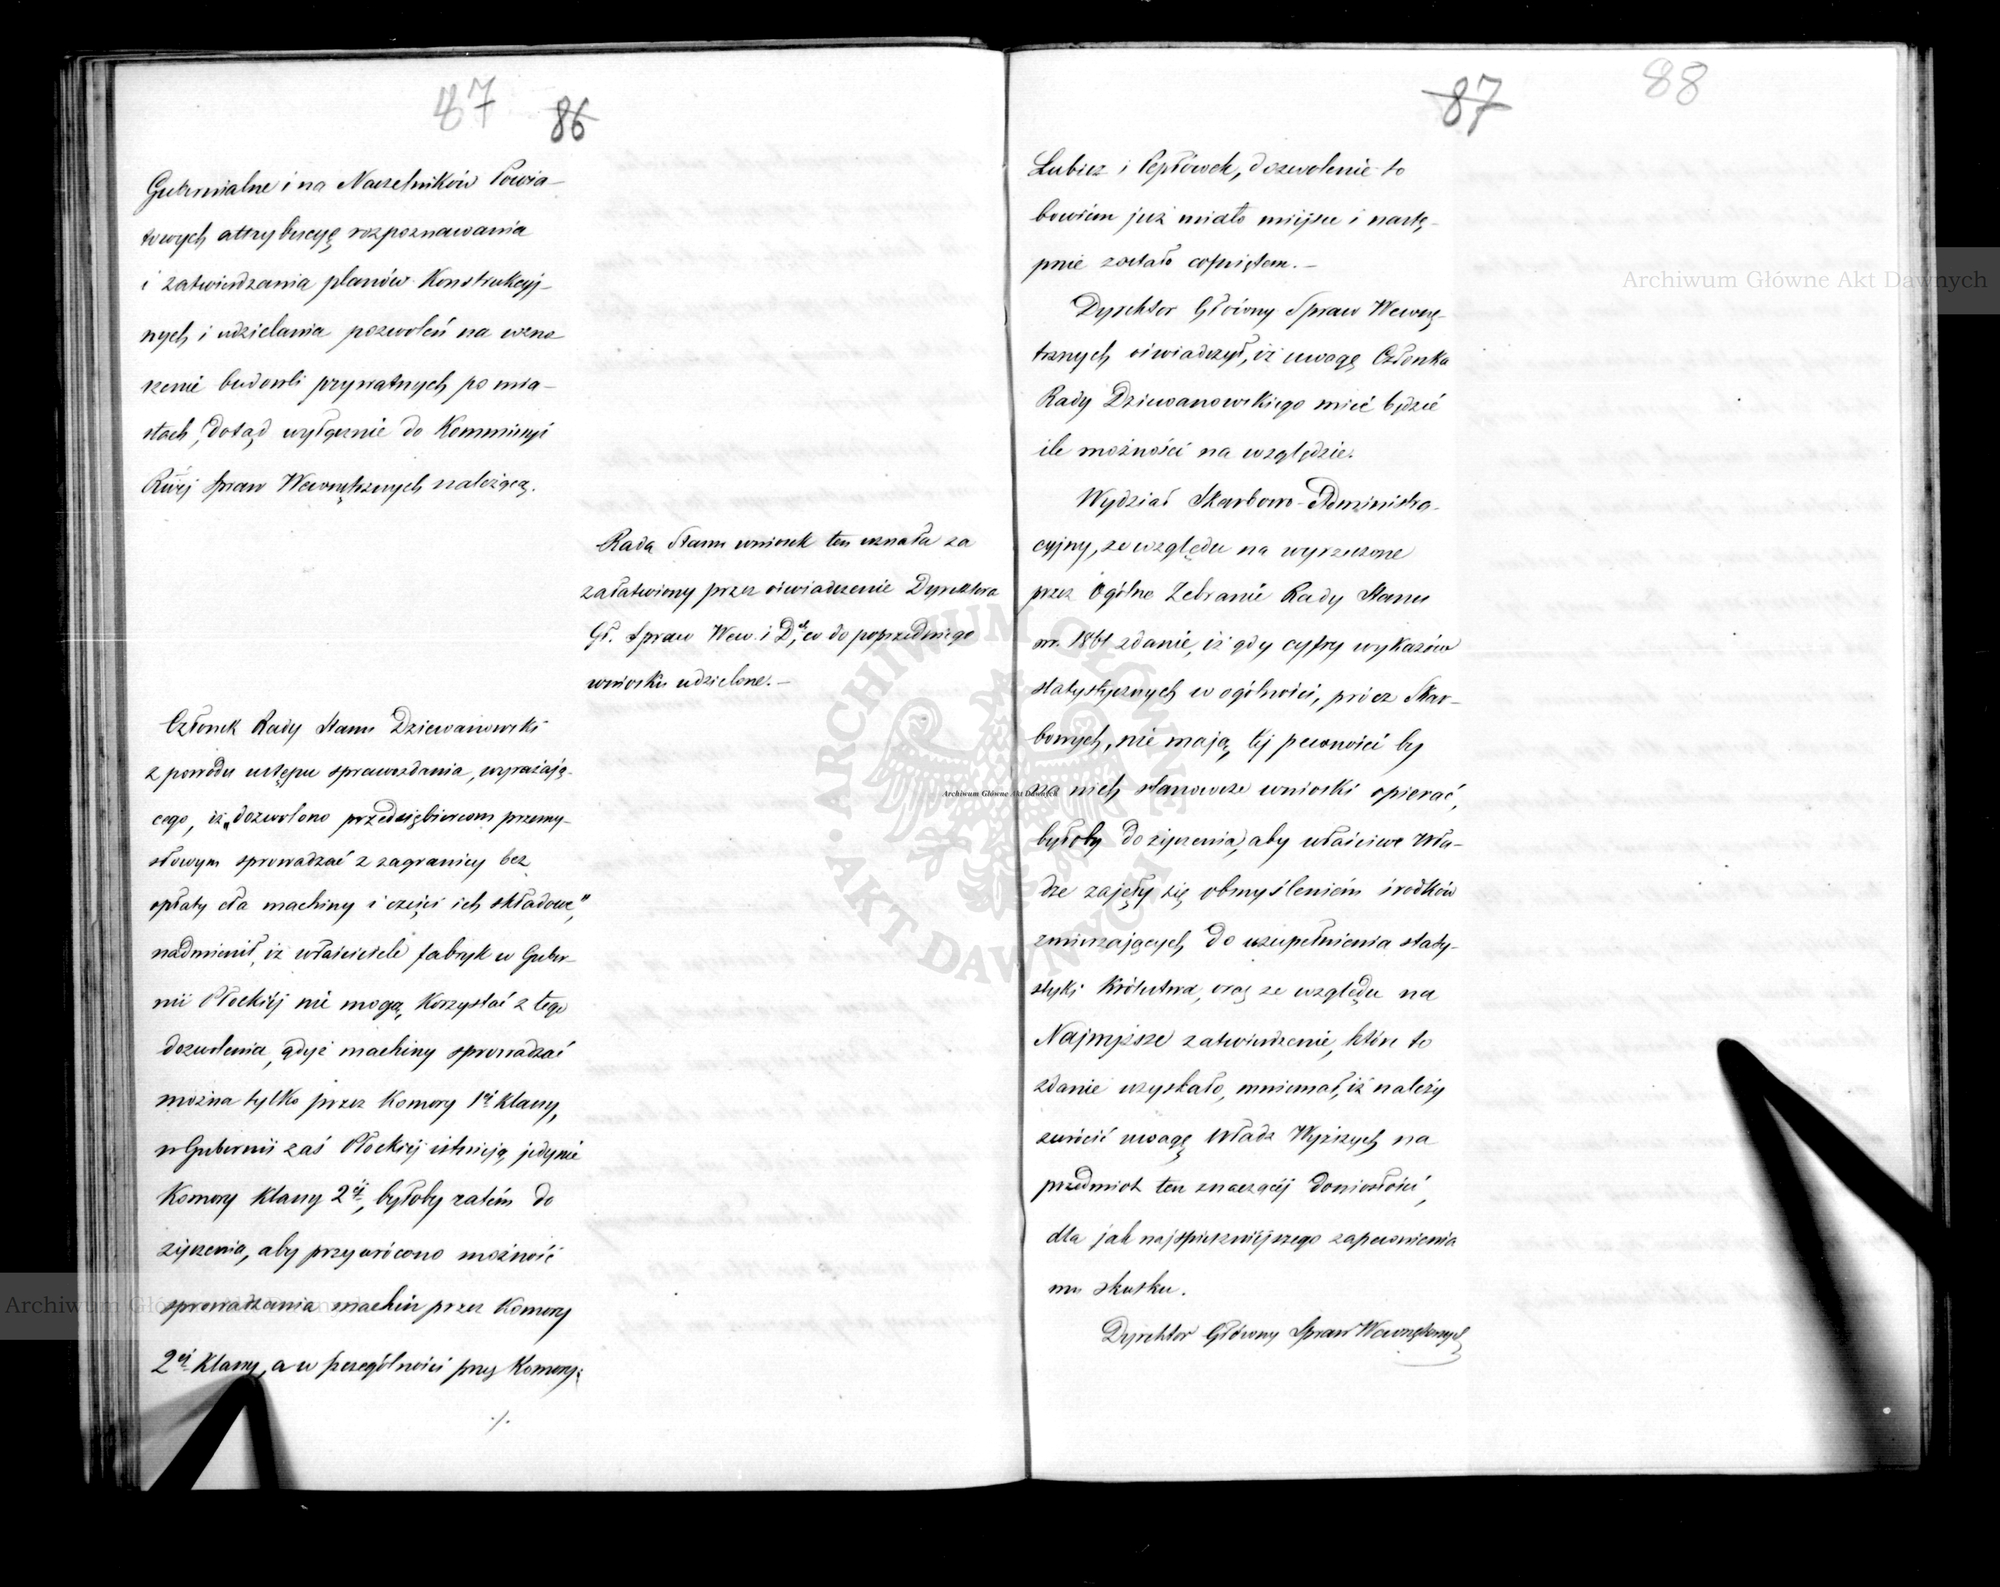 87 86
Gubernialne i na Naczelników Powia-
towych attrybucyę rozpoznawania
i zatwierdzania planów Konstrukcyj-
nych i udzielania pozwoleń na wzno
szenie budowli prywatnych po mia-
stach, dotąd wyłącznie do Kommissyi
Rząj Spraw Wewnętrznych należącą.
Rada Stanu wniosek ten uznała za
załatwiony przez oświadczenie Dyrektora
Gł. Spraw Wew. i D, co do poprzedniego
wniosku udzielone.-
Członek Rady Stanu Dziewanowski
z powodu ustępu sprawozdania, wyrażają-
cego, iż „dozwolono przedsiębiorcom przemy-
słowym sprowadzać z zagranicy bez
opłaty cła machiny i części ich składowe,"
nadmienił, iż właściciele fabryk w Guber-
nii Płockiéj nie mogą Korzystać z tego
dozwolenia, gdyż machiny sprowadzać
można tylko przez Komory 1éj Klassy,
w Gubernii zaś Płockiéj istnieją jedynie
Komory Klassy 2éj, byłoby zatém do
życzenia, aby przywrócono możność
sprowadzania machin przez Komory
2éj Klassy, a w szczególności przez Komory:
./.
87 88
Lubicz i Pepłówek, dozwolenie to
bowiem już miało miejsce i nastę-
pnie zostało cofniętem.-
Dyrektor Główny Spraw Wewnę-
trznych oświadczył, iż uwagę Członka
Rady Dziewanowskiego mieć będzie
ile możności na względzie.
Wydział Skarbowo-Administra-
cyjny, ze względu na wyrzeczone
przez Ogólne Zebranie Rady Stanu
w r. 1861 zdanie, iż gdy cyfry wykazów
statystycznych w ogólności, prócz Skar-
bowych, nie mają téj pewności by
na nich stanowcze wnioski opierać,
byłoby do życzenia, aby właściwe Wła-
dze zajęły się obmyśleniem środków
zmierzających do uzupełnienia staty-
styki Królestwa, oraz ze względu na
Najwyższe zatwierdzenie, które to
zdanie uzyskało, mniemał, iż należy
zwrócić uwagę Władz Wyższych na
przedmiot ten znaczącéj doniosłości,
dla jak najspieszniejszego zapewnienia
mu skutku.
Dyrektor Główny Spraw Wewnętrznych
Archiwum Główne Akt Dawnych
Archiwum Główne Akt Dawnych
Archiwum Główne Akt Dawnych
ARCHIWUM GŁÓWNE AKT DAWNYCH